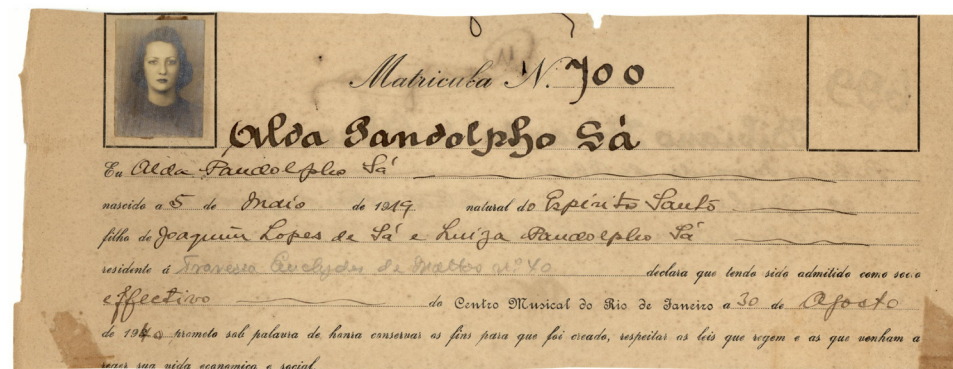 Matricula N. 700
Alda Pandolpho Sá
Eu Alda Pandolpho Sá
nascido a 5 de Maio de 1919 natural do Espírito Santo
filho de Joaquim Lopes de Sá e Luiza Pandolpho Sá
residente á Travessa Euclydes de Mattos nº 40 declara que tendo sido admitido como socio
effectivo do Centro Musical do Rio de Janeiro a 30 de Agosto
de 1940 prometo sob palavra de honra conservar os fins para que foi creado, respeitar as leis que regem e as que venham a
reger sua vida economica e social